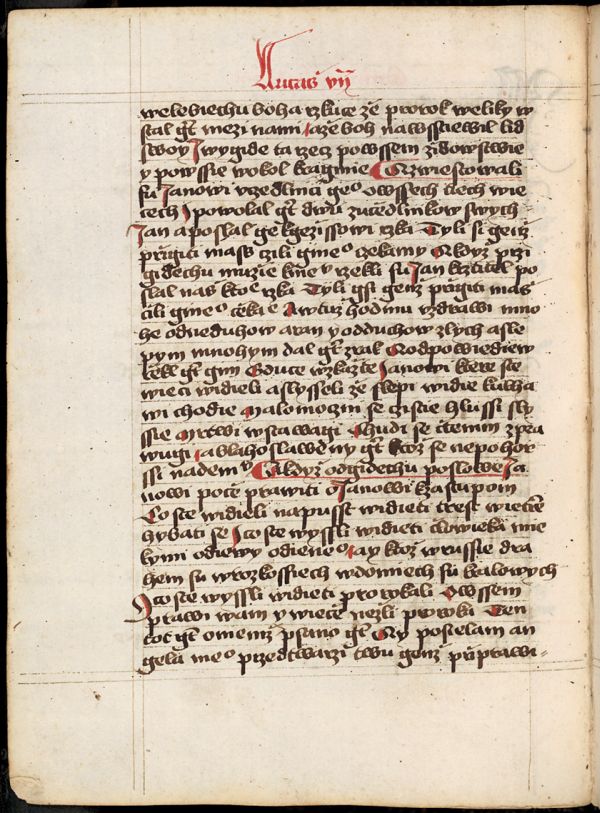 Lucas vij
welebiechu boha rzkuce ze prorok weliky w
stal gt mezi nami a ze boh nawsstiewil lid
swoy I wygide ta rzecz po wssem zidowstwie
y po wssie wokol kraginie Q zwiestowali
su Janowi vczedlnici geo o wssech tiech wie
cech I powolal gt dwu zucedlnikow swych
Jan a poslal ge k gezissowi rzka Ty li si genz
prigiti mass czili gineo czekamy A kdyz przi
gidechu muzie k niemu rzekli su Jan krztitel po
slal nas k tobe rzka Ty li gsi genz prigiti mas
cili gineo cekame A w tuz hodinu vzdrawi mno
he od neduhow a ran y od duchow zlych a sle
pym mnohym dal gt zrak A odpowiediew
rekl gt gim Gduce wzkazte Janowi ktere ste
wieci widieli a slysseli ze slepi widie kulha
wi chodie malomocni se czistie hlussi sly
ssie mrtwi wstawagi Chudi se ctenim zpra
wugi a blahoslaweny gt ktoz se nepohor
ssi nademnu A kdyz odgidechu poslowe Ja
nowi poce prawiti o Janowi k zastupom
Co ste widieli na pusst widieti trest wietrem
hybati se I co ste wyssli widieti clowieka mie
kymi odiewy odieneo ay ktoz w russie dra
hem su w rozkossiech w domiech su kralowych
I co ste wyssli widieti proroka li Owssem
prawi wam y wiece nezli proroka Ten
tot gt o nemz psano gt Ay posielam an
gela meo przed twarzi twu genz priprawi